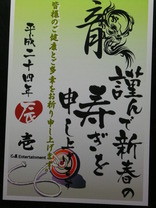 龍
謹んで新春の
寿ぎを
申し上
皆様のご健康とご多幸をお祈り申し上げます
平成二十四年
辰
壱
Entertainment